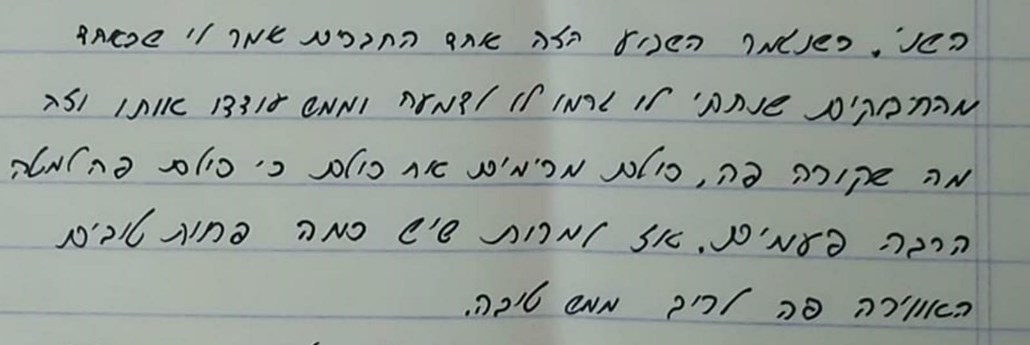 השני. כשנגמר השבוע הזה אחד החברים אמר לי שכאחד
מהחיבוקים שנתתי לו גרמו לו לדמעה וממש עודדו אותו וזה
מה שקורה פה, כולם מרימים את כולם כי כולם פה למטה
הרבה פעמים. אז למרות שיש כמה פחות טובים
האווירה פה לריב ממש טובה.